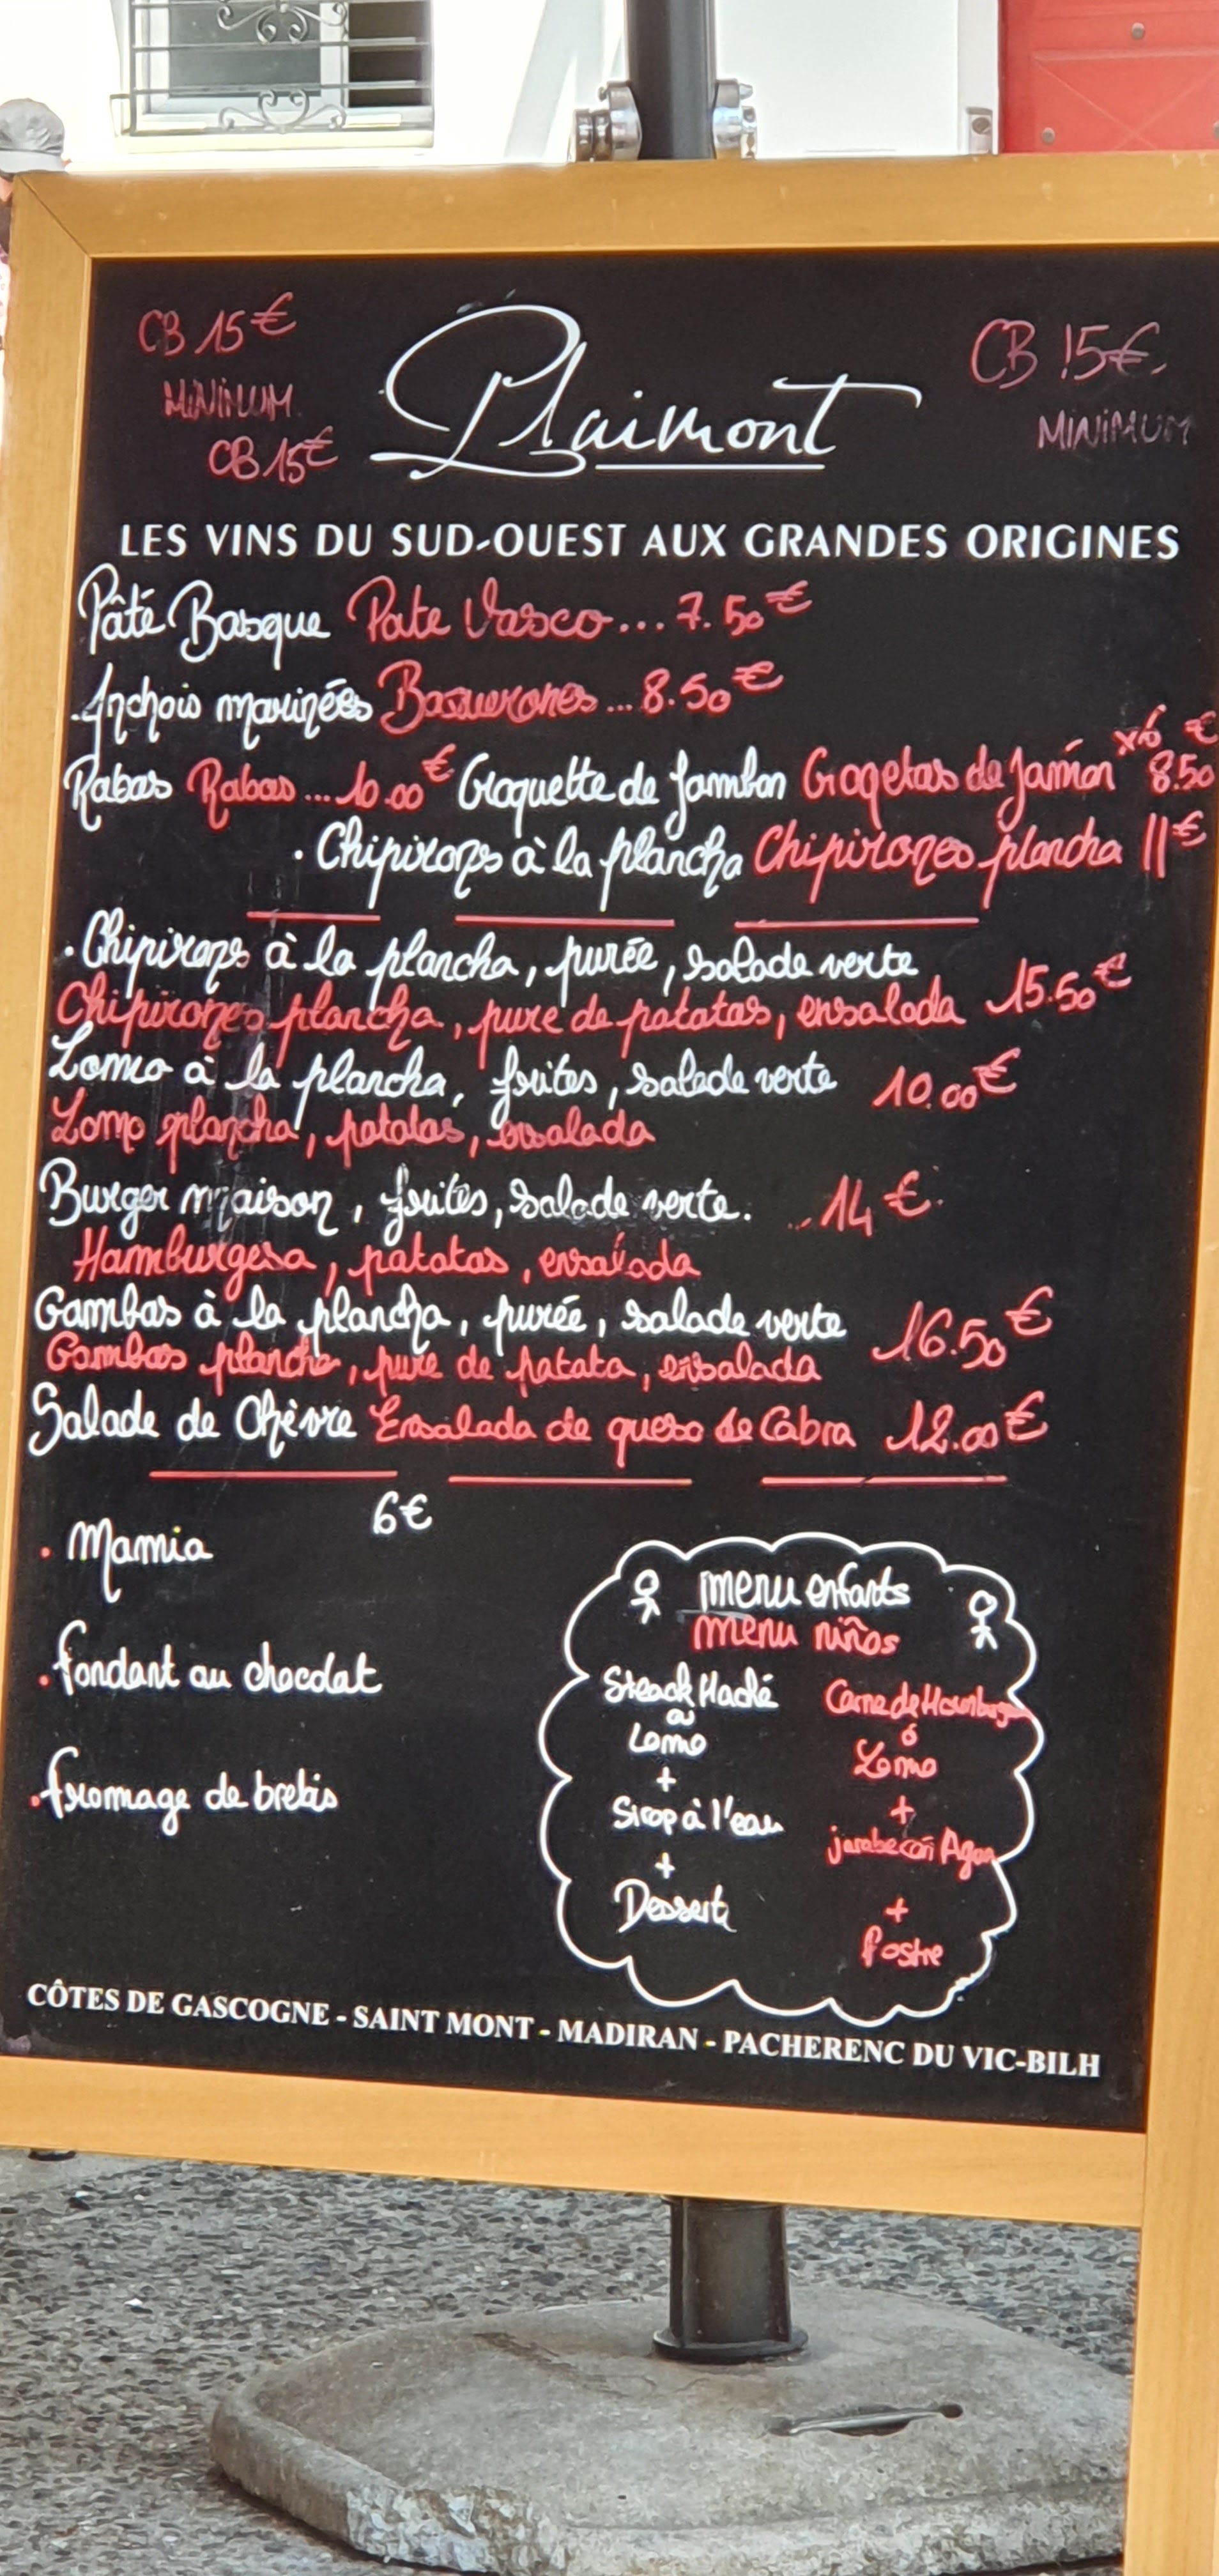 CB 15€
MINIMUM
CB 15€
Plaimont
CB 15€
MINIMUM
LES VINS DU SUD-OUEST AUX GRANDES ORIGINES
Pâté Basque Pate Vasco... 7.50€
Anchois marinées ... 8.50€
Rabas Rabas ... 10.00€ Croquette de jambon Croqetas de Jamón x6 8.50€
. Chipirons à la plancha Chipirones plancha 11€
. Chipirons à la plancha, purée, salade verte
Chipirones plancha, pure de patatas, ensalada 15.50€
Lomo à la plancha, frites, salade verte 10.00€
Lomo plancha, patatas, ensalada
Burger maison, frites, salade verte. ... 14€
Hamburgesa, patatas, ensalada
Gambas à la plancha, purée, salade verte 16.50€
Gambas plancha, pure de patata, ensalada
Salade de Chèvre Ensalada de queso de Cabra 12.00€
6€
. Mamia
. fondant au chocolat
. fromage de brebis
menu enfants
menu niños
Steack Haché
ou
Lomo
+
Sirop à l'eau
+
Dessert
Carne de Hamburgesa
ó
Lomo
+
jarabe con Agua
+
Postre
CÔTES DE GASCOGNE - SAINT MONT - MADIRAN - PACHERENC DU VIC-BILH